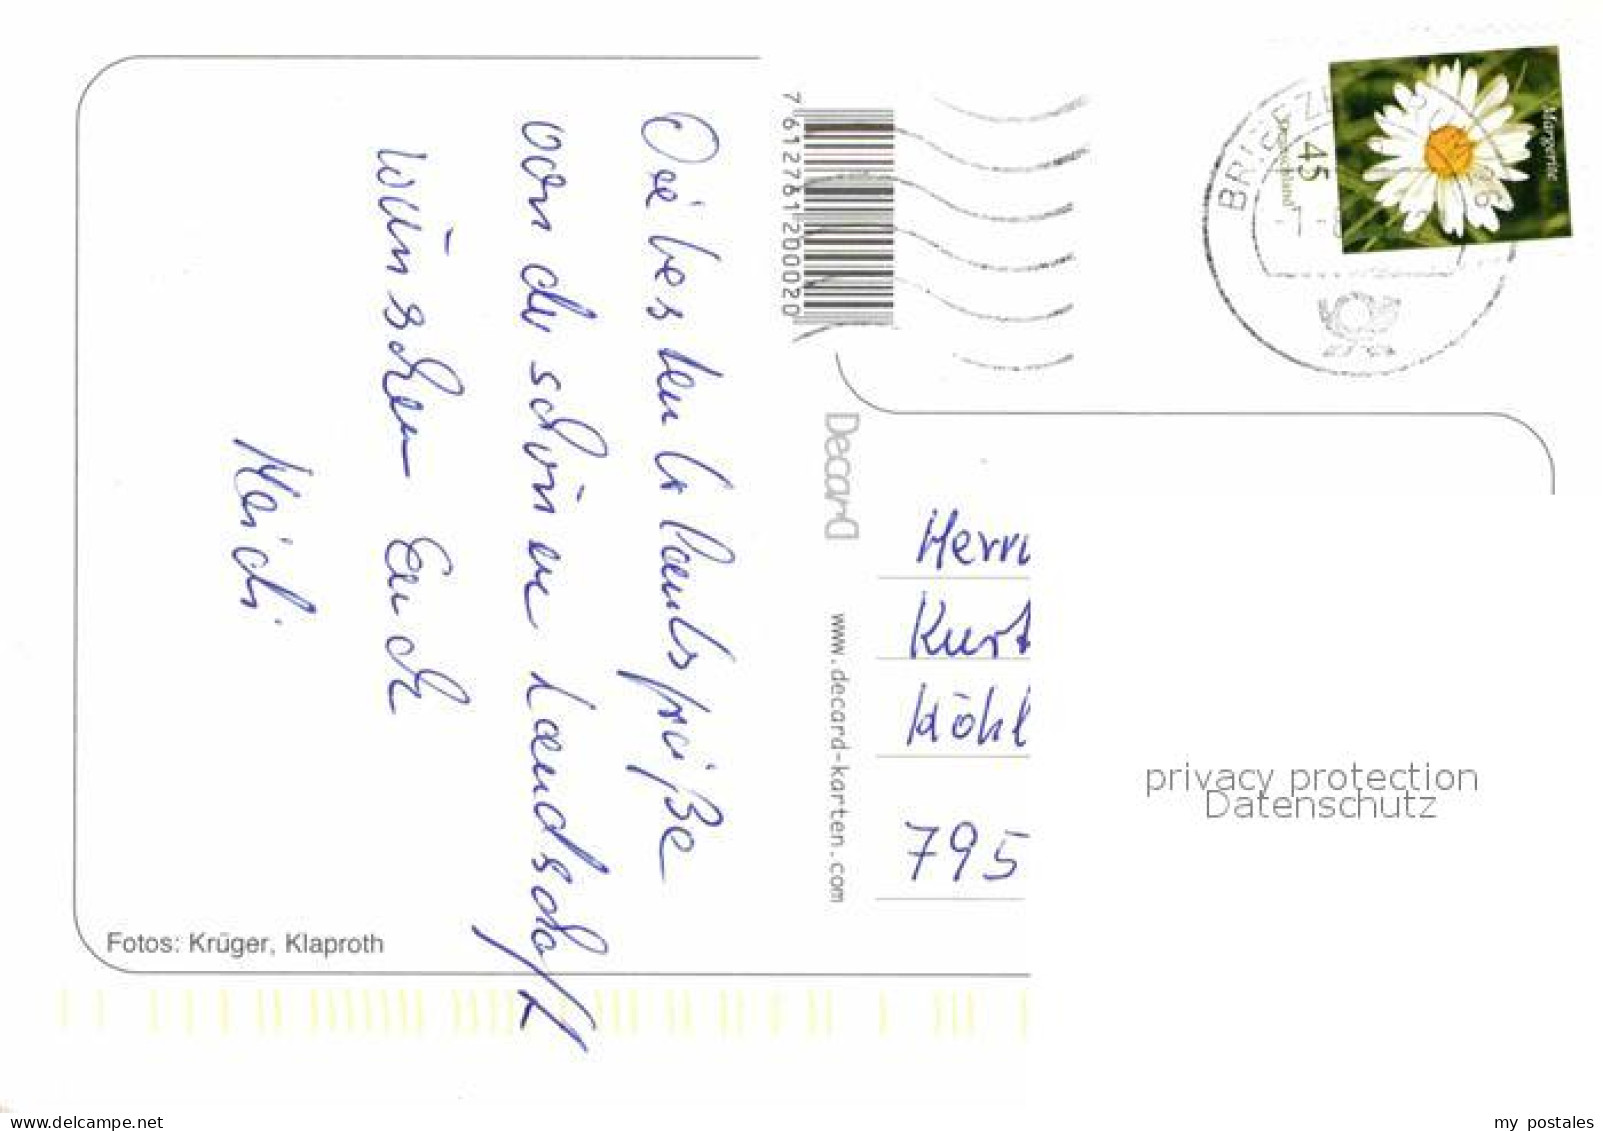 Die besten Urlaubsgrüße
von der schönen Landschaft
wünschen Euch
Heidi
Fotos: Krüger, Klaproth
7612761200020
Decard
www.decard-karten.com
Margerite
45
Deutschland
BRIEFZE
Herrn
Kurt
Köhl
795
privacy protection
Datenschutz
www.delcampe.net
my_postales